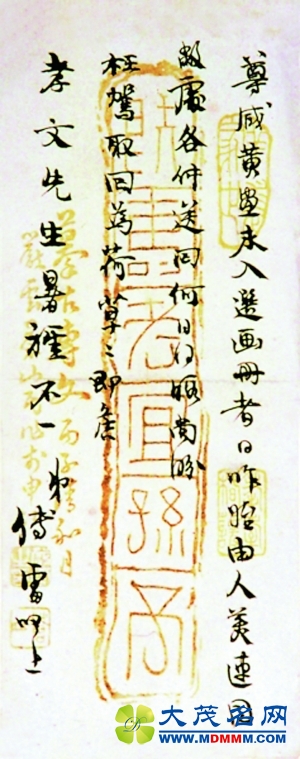 尊藏黄畫未入選画冊者日昨始由人美連同
敝處各件送回何日得暇尚盼
枉駕取回為荷草〻即候
孝文先生暑祺不一 弟
傅雷叩上
大茂名网
WWW.DMMMM.COM